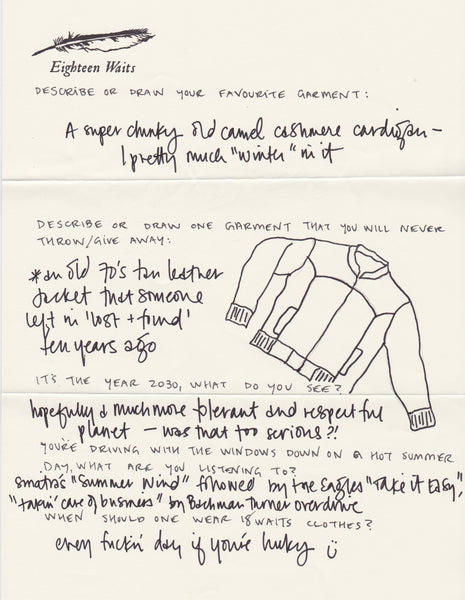 Eighteen Waits
DESCRIBE OR DRAW YOUR FAVOURITE GARMENT:
A super chunky old camel cashmere cardigan –
I pretty much "winter" in it
DESCRIBE OR DRAW ONE GARMENT THAT YOU WILL NEVER
THROW/GIVE AWAY:
*an old 70's tan leather
Jacket that someone
left in 'lost + found'
ten years ago
IT'S THE YEAR 2030, WHAT DO YOU SEE?
hopefully a much more tolerant and respectful
planet – was that too serious?!
YOU'RE DRIVING WITH THE WINDOWS DOWN ON A HOT SUMMER
DAY, WHAT ARE YOU LISTENING TO?
Sinatra's "Summer Wind" followed by the Eagles "Take it Easy",
"takin' care of business" by Bachman Turner overdrive
WHEN SHOULD ONE WEAR 18 WAITS CLOTHES?
every fuckin' day if you're lucky